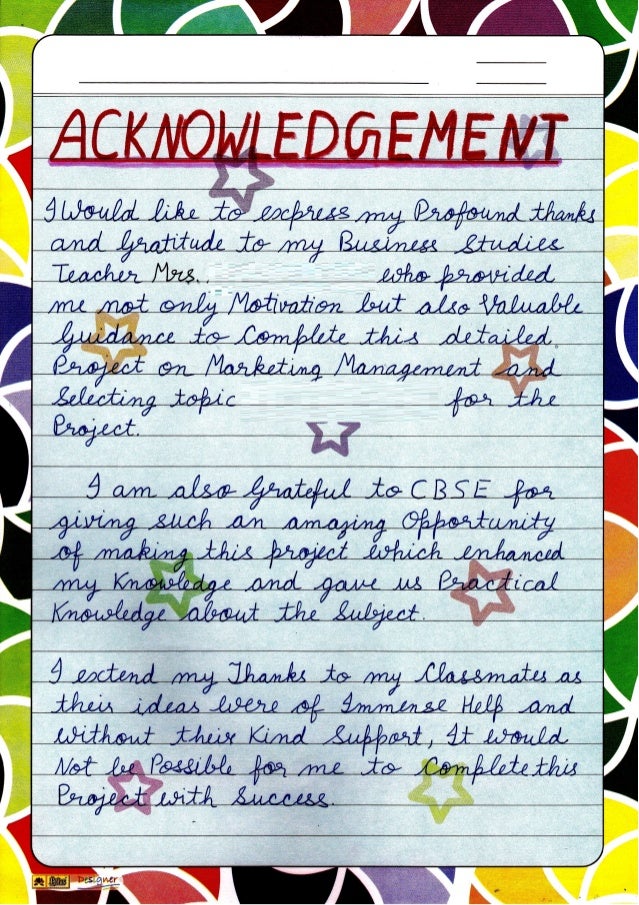 ACKNOWLEDGEMENT
I Would like to express my Profound thanks
and Gratitude to my Business Studies
Teacher Mrs. who provided
me not only Motivation but also Valuable
Guidance to Complete this detailed
Project on Marketing Management and
Selecting topic for the
Project.
I am also Grateful to CBSE for
giving such an amazing Opportunity
of making this project which enhanced
my Knowledge and gave us Practical
Knowledge about the Subject.
I extend my Thanks to my Classmates as
their ideas were of Immense Help and
without their Kind Support, It would
Not be Possible for me to Complete this
Project with Success.
Designer